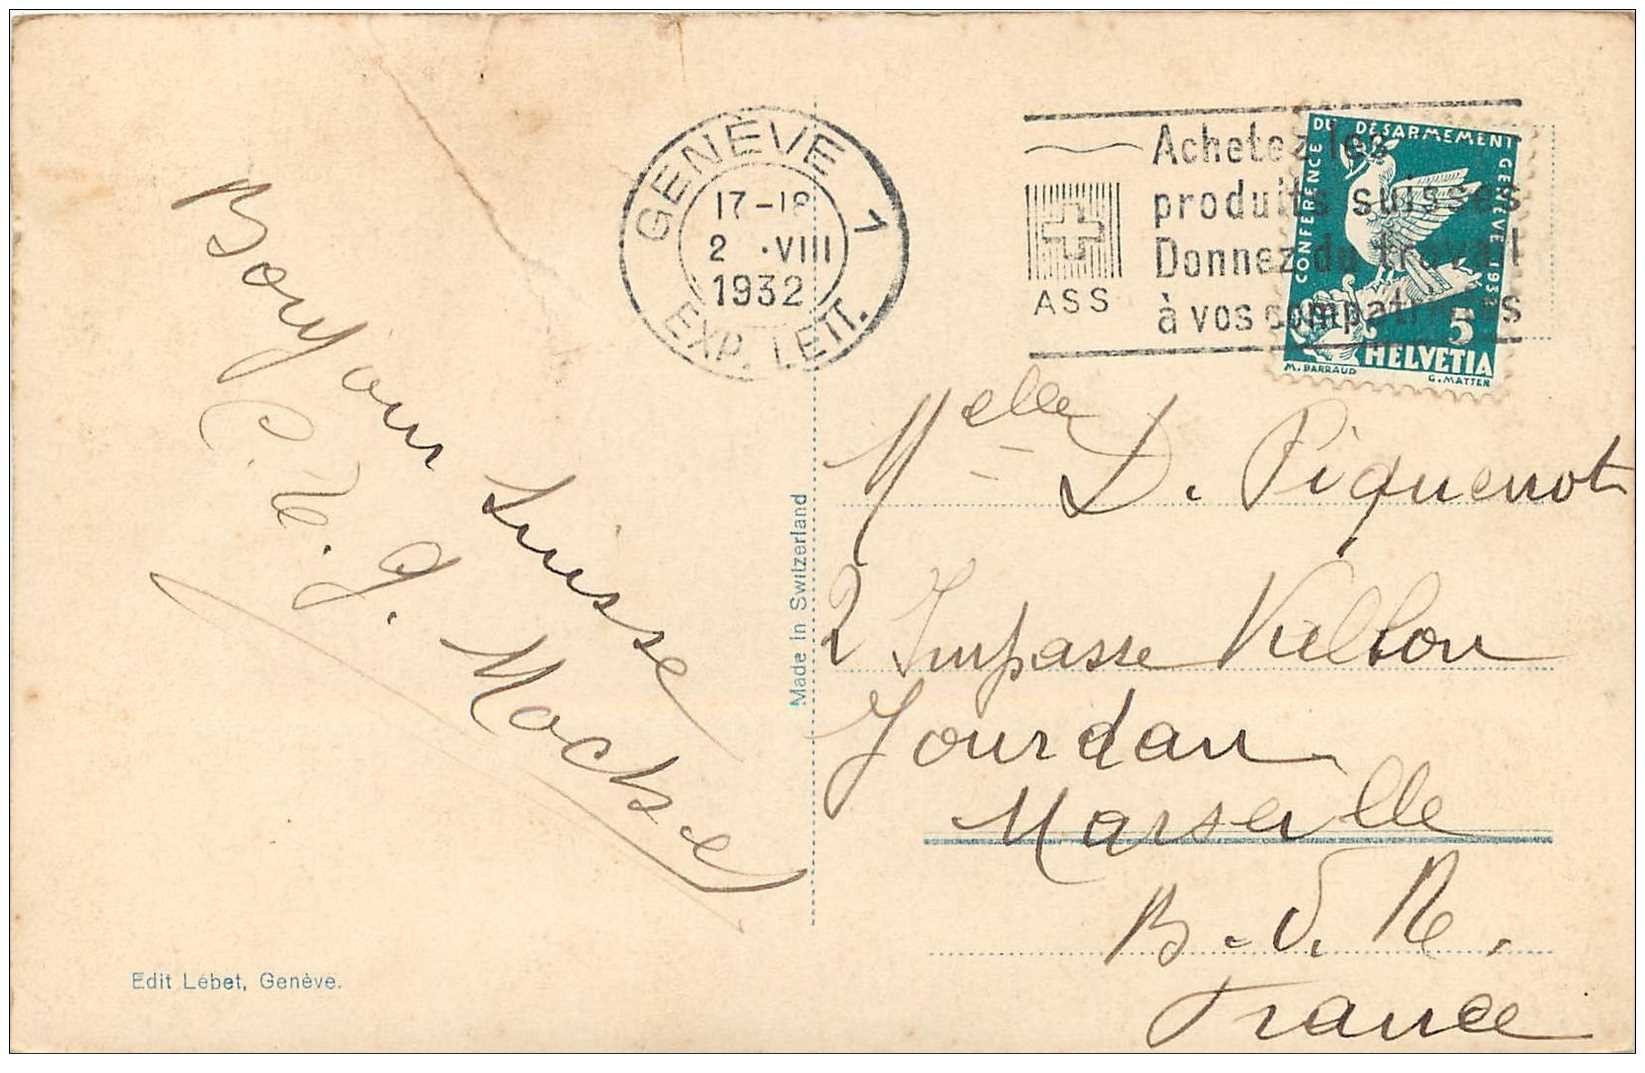 GENÈVE 1
17-18
2 ·VIII
1932
EXP. LETT.
Achetez les
produits suisses
Donnez du travail
à vos compatriotes
ASS
CONFERENCE DU DESARMEMENT GENEVE 1932
5
HELVETIA
M. BARRAUD
G. MATTER
Bonjour Suisse
G. Mochel
Made in Switzerland
Melle D. Piquenot
2 Impasse Villon
Jourdan
Marseille
B. d. R.
France
Edit Lébet, Genève.